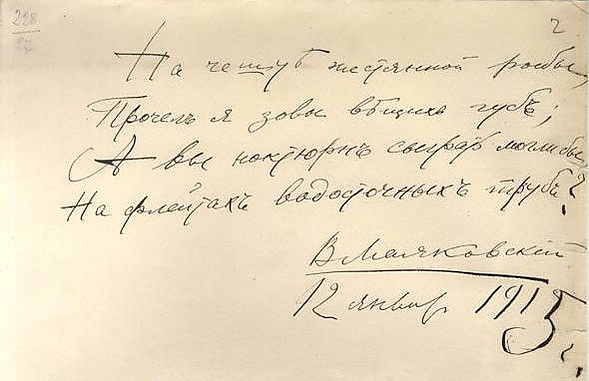 228
2
На чешуѣ жестянной рыбы,
Прочелъ я зовы вѣщихъ губъ;
А вы ноктюрнъ сыграть могли бы
На флейтахъ водосточныхъ трубъ?
ВМаяковскій
12 январ 1915 г.